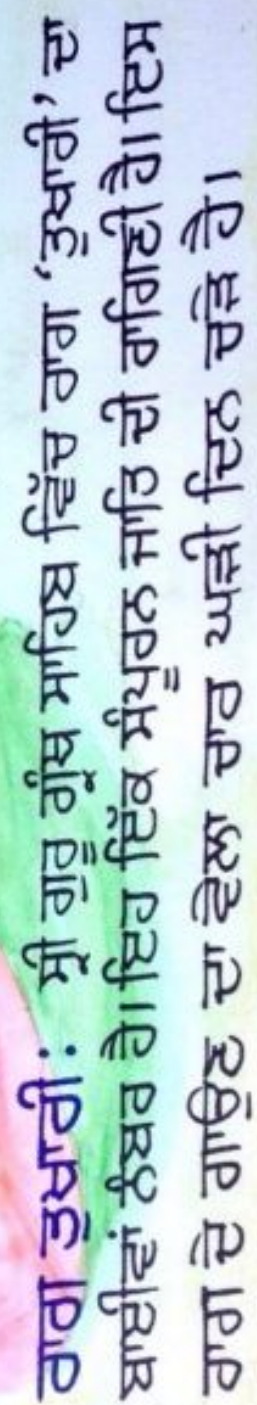 ਰਾਗ ਤੁਖਾਰੀ: ਸ੍ਰੀ ਗੁਰੂ ਗ੍ਰੰਥ ਸਾਹਿਬ ਵਿੱਚ ਰਾਗ 'ਤੁਖਾਰੀ' ਦਾ
ਬਾਈਵਾਂ ਨੰਬਰ ਹੈ। ਇਹ ਇੱਕ ਸੰਪੂਰਨ ਜਾਤਿ ਦੀ ਰਾਗਿਣੀ ਹੈ। ਇਸ
ਰਾਗ ਦੇ ਗਾਉਣ ਦਾ ਵੇਲਾ ਚਾਰ ਘੜੀ ਦਿਨ ਚੜ੍ਹੇ ਹੈ।